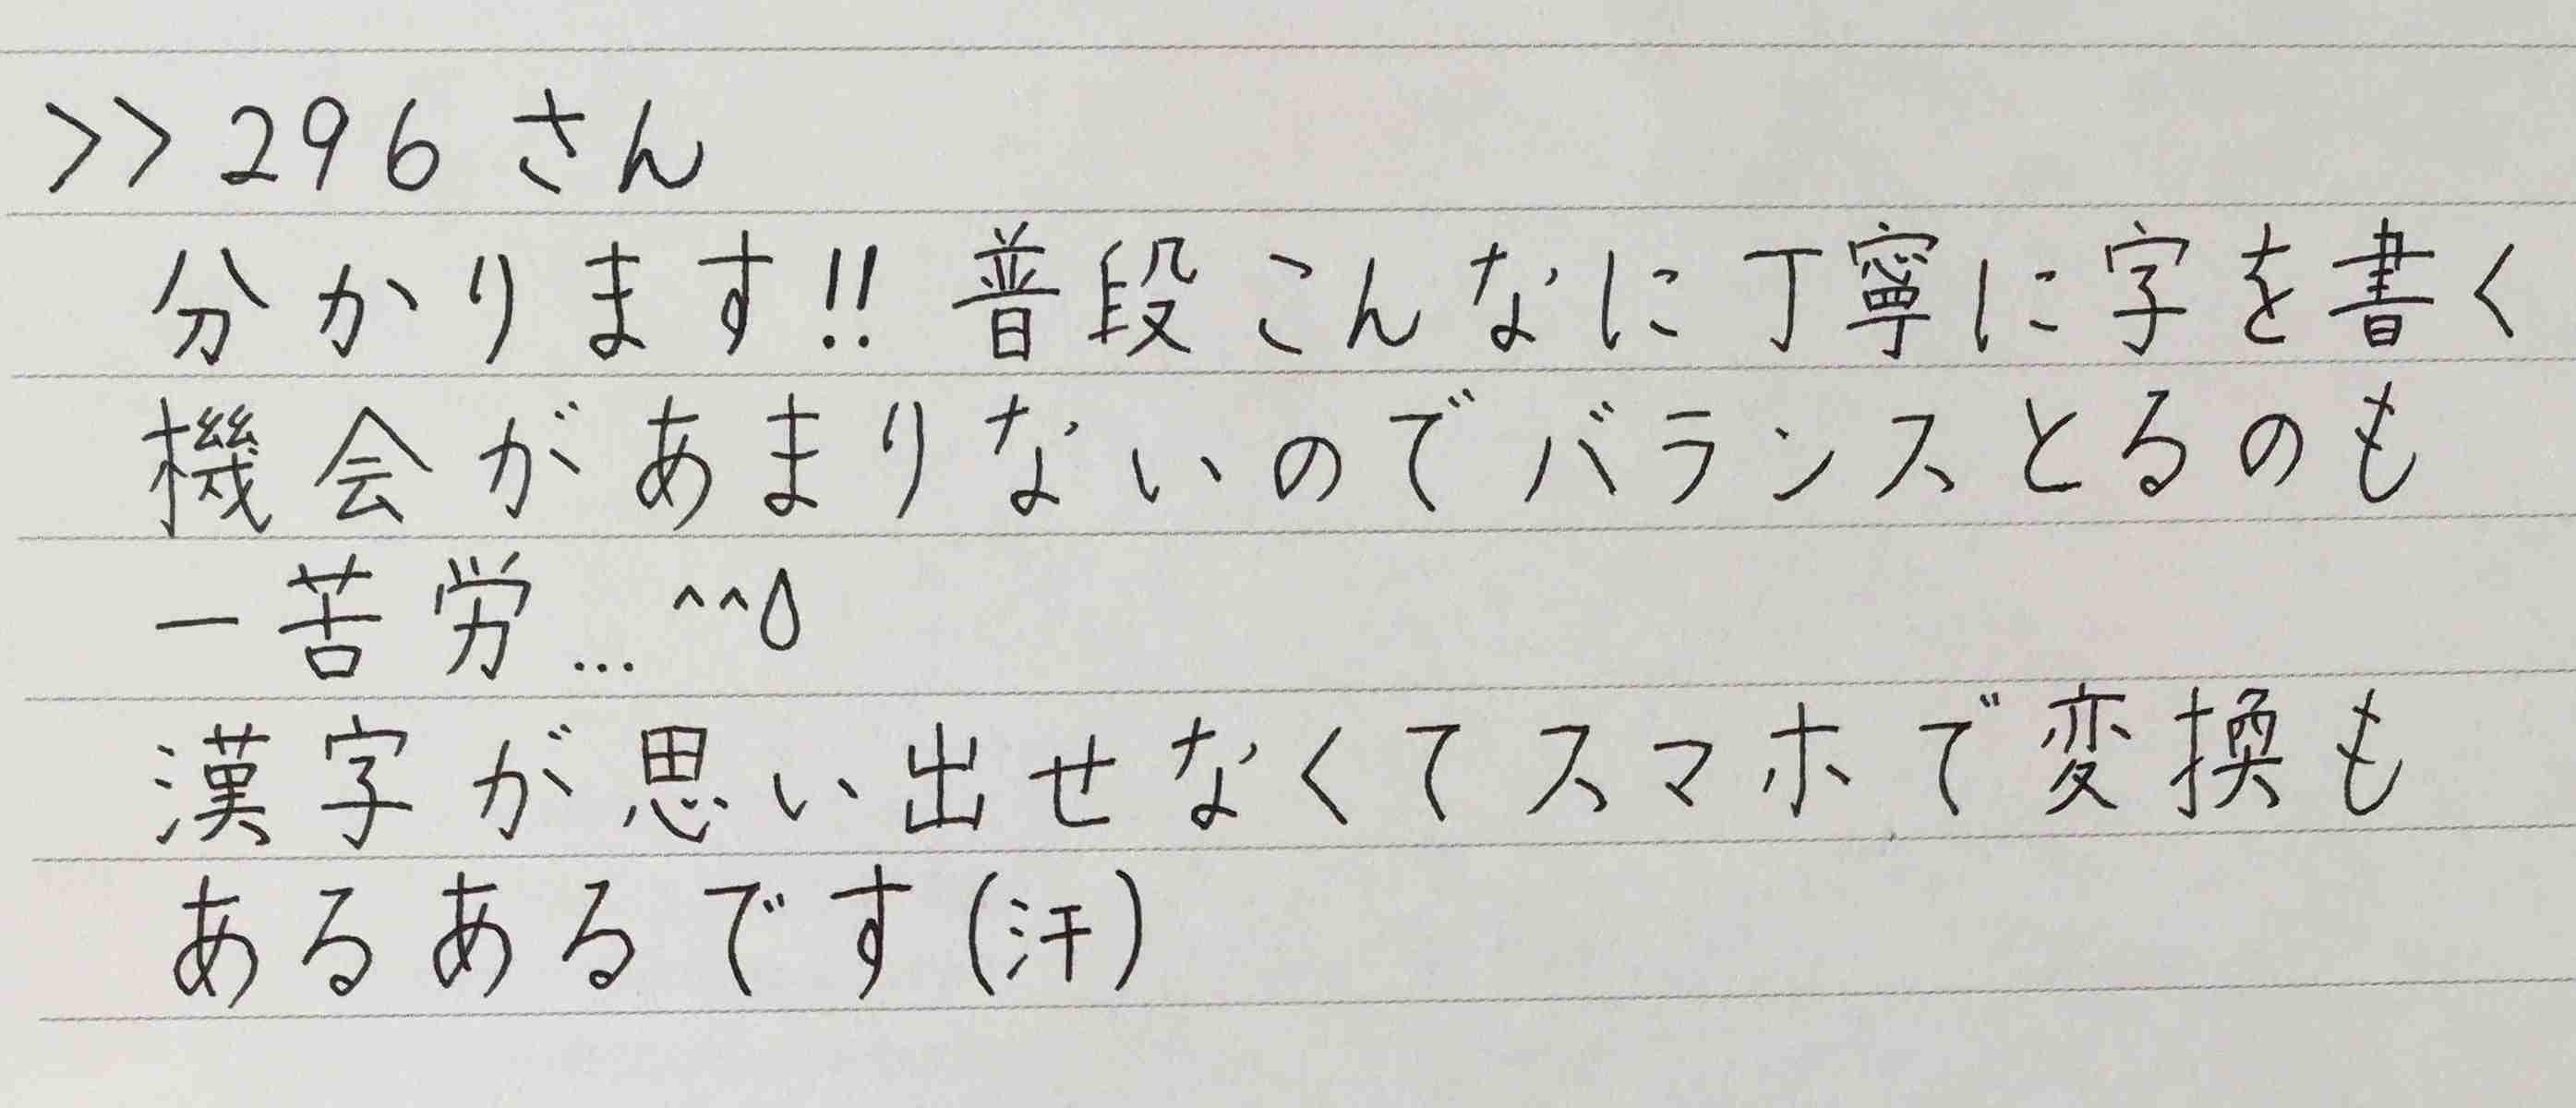 >>296 さん
分かります!! 普段こんなに丁寧に字を書く
機会があまりないのでバランスとるのも
一苦労... ^^💧
漢字が思い出せなくてスマホで変換も
あるあるです(汗)